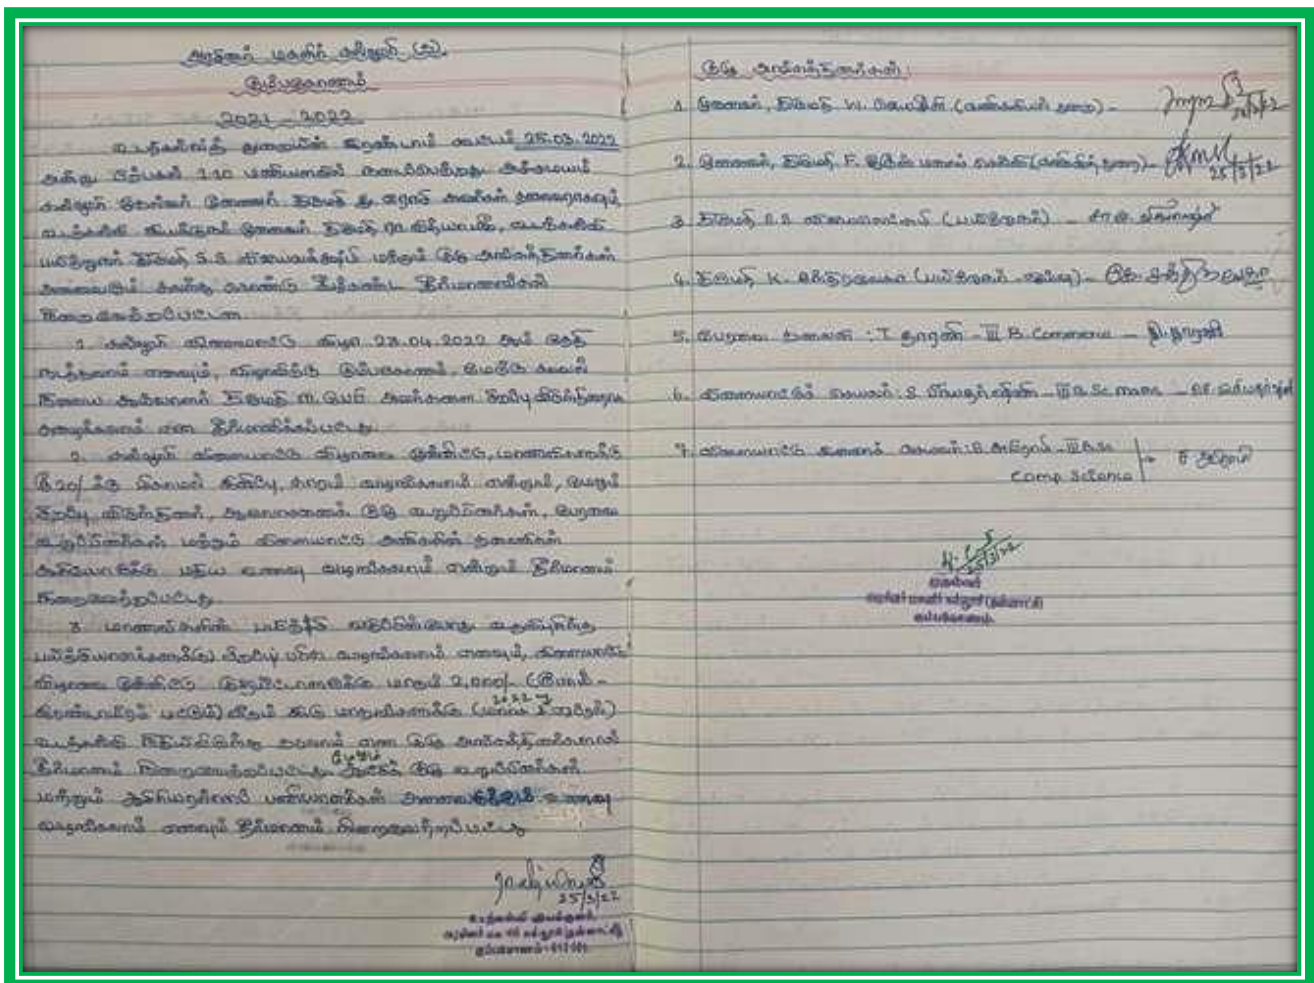 அரசினர் மகளிர் கல்லூரி (த).
கும்பகோணம்
2021 - 2022
உடற்கல்வித் துறையின் இரண்டாம் கூட்டம் 25.03.2022
அன்று பிற்பகல் 1.10 மணியளவில் நடைபெற்றது அச்சமயம்
கல்லூரி முதல்வர் முனைவர் திருமதி அவர்கள் தலைவராகவும்,
உடற்கல்வி இயக்குநர் முனைவர் திருமதி உடற்கல்வி
பயிற்றுனர் திருமதி S.S விஜயலட்சுமி மற்றும் குழு அங்கத்தினர்கள்
அனைவரும் கலந்து கொண்டு கீழ்கண்ட தீர்மானங்கள்
நிறைவேற்றப்பட்டன
1. கல்லூரி விளையாட்டு விழா 28.04.2022 ஆம் தேதி
நடத்தலாம் எனவும், விழாவிற்கு கும்பகோணம், மேற்கு காவல்
நிலைய ஆய்வாளர் திருமதி அவர்களை சிறப்பு விருந்தினராக
அழைக்கலாம் என தீர்மானிக்கப்பட்டது
2. கல்லூரி விளையாட்டு விழாவை முன்னிட்டு, மாணவிகளுக்கு
ரூ 20/ க்கு மிகாமல் இனிப்பு, காரம் வழங்கலாம் என்றும், மேலும்
சிறப்பு விருந்தினர், ஆலோசனைக் குழு உறுப்பினர்கள், பேரவை
உறுப்பினர்கள் மற்றும் விளையாட்டு அணிகளின் தலைவிகள்
ஆகியோருக்கு மதிய உணவு வழங்கலாம் என்றும் தீர்மானம்
நிறைவேற்றப்பட்டது
3. மாணவிகளின்
வழங்கலாம் எனவும், விளையாட்டு
விழாவை முன்னிட்டு மாதம் 2,000/- (ரூபாய் -
இரண்டாயிரம் மட்டும்) வீதம் இரு மாதங்களுக்கு (மார்ச் & ஏப்ரல்) 2022
உடற்கல்வி நிதியிலிருந்து தரலாம் என குழு அங்கத்தினர்களால்
தீர்மானம் நிறைவேற்றப்பட்டது மேலும் குழு உறுப்பினர்கள்
மற்றும் ஆசிரியரல்லாப் பணியாளர்கள் அனைவருக்கும் உணவு
வழங்கலாம் எனவும் தீர்மானம் நிறைவேற்றப்பட்டது
25/3/22
உடற்கல்வி இயக்குனர்,
அரசினர் மகளிர் கல்லூரி (தன்னாட்சி)
கும்பகோணம் - 612 001.
குழு அங்கத்தினர்கள்:
1. முனைவர், திருமதி W. (துறை) -
2. முனைவர், திருமதி F. (துறை) - 25/3/22
3. திருமதி S.S விஜயலட்சுமி (பயிற்றுனர்) -
4. திருமதி K. சந்திரலேகா -
5. பேரவை தலைவி : T தாரணி - III B. Commerce -
6. விளையாட்டுச் செயலர் : S பிரியதர்ஷினி - III B. Sc maths -
7. விளையாட்டு துணைச் செயலர் : S அபிராமி - II B.Sc
Comp Science
25/3/22
முதல்வர்
அரசினர் மகளிர் கல்லூரி (தன்னாட்சி)
கும்பகோணம்.